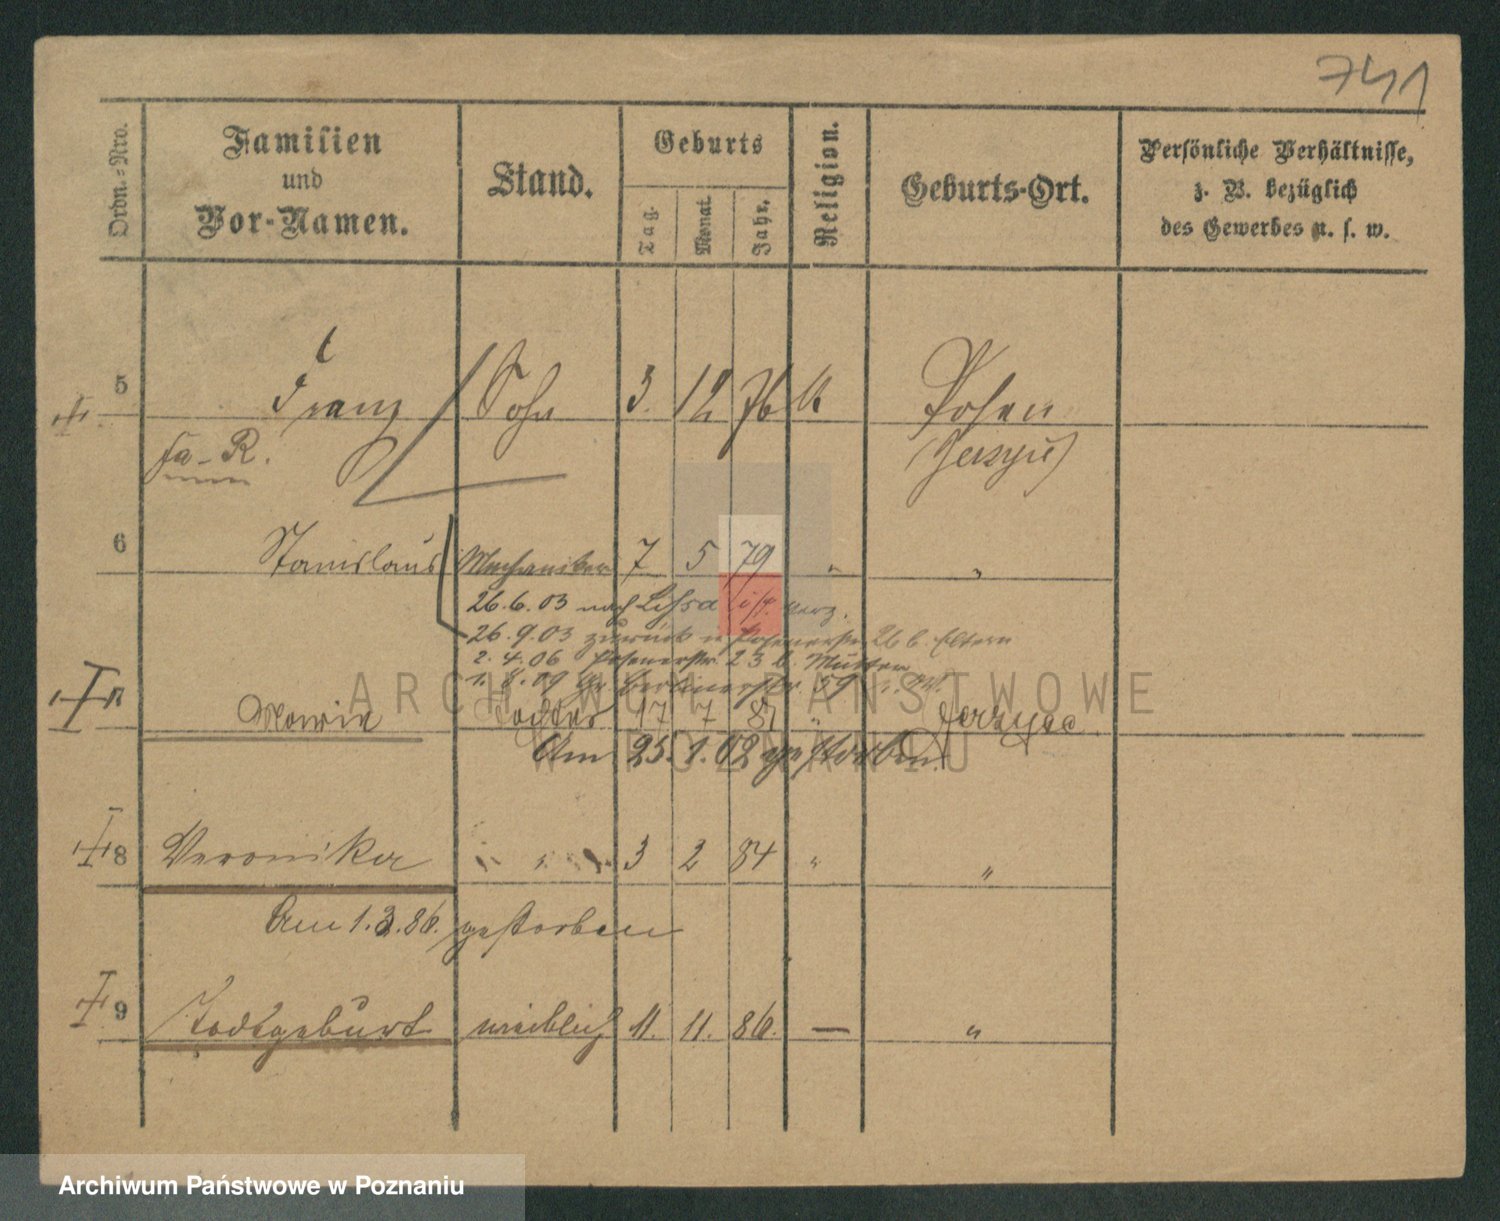 741
Ordn.-Nro. Familien und Vor-Namen. Stand. Geburts Tag. Monat. Jahr. Religion. Geburts-Ort. Persönliche Verhältnisse, z. B. bezüglich des Gewerbes u. s. w.
5 Franz Sohn 3. 12 76 k. Posen
fa-R. (Jerzyce)
6 Stanislaus Mechaniker 7 5 79 " "
26.6.03 nach Lissa
26.9.03 zurück Posenerstr. 26 b. Eltern
2.4.06 Posenerstr. 23 b. Mutter
1.8.09 Berlinerstr. 59
7 Maria Tochter 17 7 81 " Jerzyce
Am 25.1.02 gestorben
8 Veronika " 3 2 84 " "
Am 1.3.86. gestorben
9 Todtgeburt weiblich 11. 11. 86. — "
ARCHIWUM PAŃSTWOWE
W POZNANIU
Archiwum Państwowe w Poznaniu